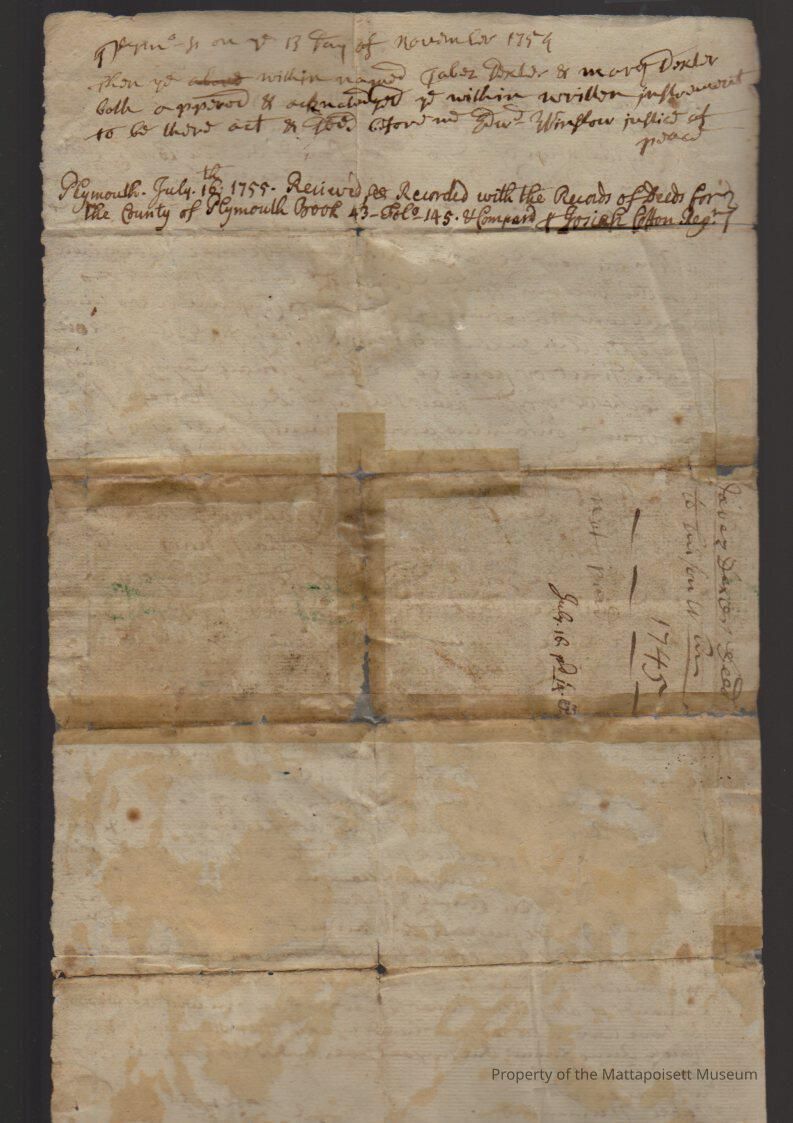 Plymo ss on ye 13 Day of November 1754
then ye above within named Jabez Dexter & mary Dexter
both appered & acknowledged ye within written instrument
to be there act & Deed before me Edwd Winslow justice of
peace
Plymouth. July. 16th: 1755. Recieved & Recorded with the Records of Deeds for
the County of Plymouth Book 43 - Folo 145. & Compard Josiah Cotton Regr
Jabez Dexter Deed
to
1745
July 16
Property of the Mattapoisett Museum